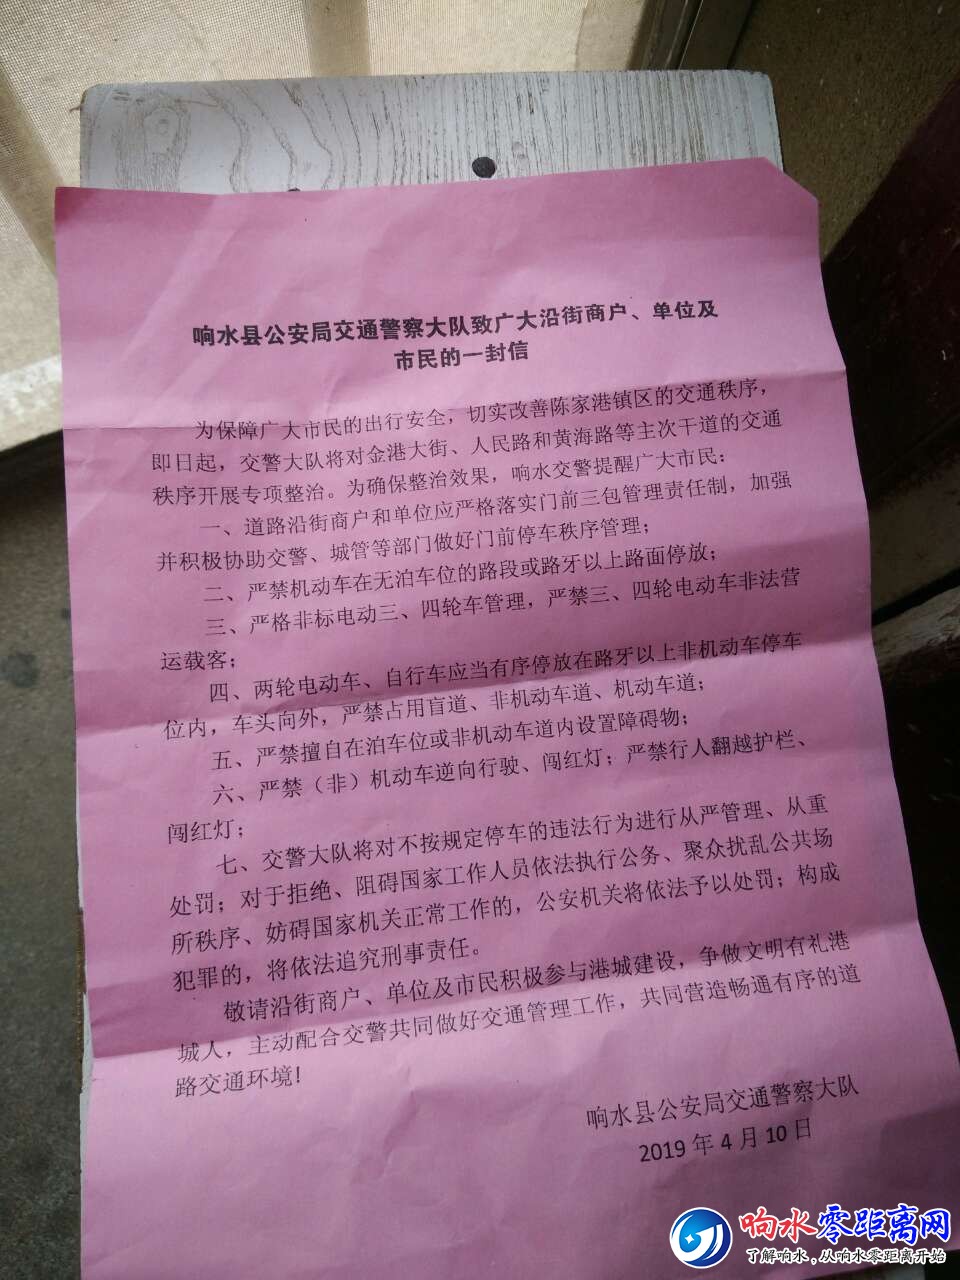 响水县公安局交通警察大队致广大沿街商户、单位及
市民的一封信
为保障广大市民的出行安全，切实改善陈家港镇区的交通秩序，
即日起，交警大队将对金港大街、人民路和黄海路等主次干道的交通
秩序开展专项整治。为确保整治效果，响水交警提醒广大市民：
一、道路沿街商户和单位应严格落实门前三包管理责任制，加强
并积极协助交警、城管等部门做好门前停车秩序管理；
二、严禁机动车在无泊车位的路段或路牙以上路面停放；
三、严格非标电动三、四轮车管理，严禁三、四轮电动车非法营
运载客；
四、两轮电动车、自行车应当有序停放在路牙以上非机动车停车
位内，车头向外，严禁占用盲道、非机动车道、机动车道；
五、严禁擅自在泊车位或非机动车道内设置障碍物；
六、严禁（非）机动车逆向行驶、闯红灯；严禁行人翻越护栏、
闯红灯；
七、交警大队将对不按规定停车的违法行为进行从严管理、从重
处罚；对于拒绝、阻碍国家工作人员依法执行公务、聚众扰乱公共场
所秩序、妨碍国家机关正常工作的，公安机关将依法予以处罚；构成
犯罪的，将依法追究刑事责任。
敬请沿街商户、单位及市民积极参与港城建设，争做文明有礼港
城人，主动配合交警共同做好交通管理工作，共同营造畅通有序的道
路交通环境!
响水县公安局交通警察大队
2019 年 4 月 10 日
响水零距离网
了解响水，从响水零距离开始